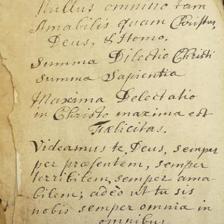 Nullus omnino tam
Amabilis quam Christus
Deus, & Homo.
Summa Dilectio Christi
summa Sapientia
Maxima Delectatio
in Christo maxima est
Fœlicitas.
Videamus te Deus, semper
per præsentem, semper
terribilem, semper ama-
bilem; adeo ut tu sis
nobis semper omnia in
omnibus